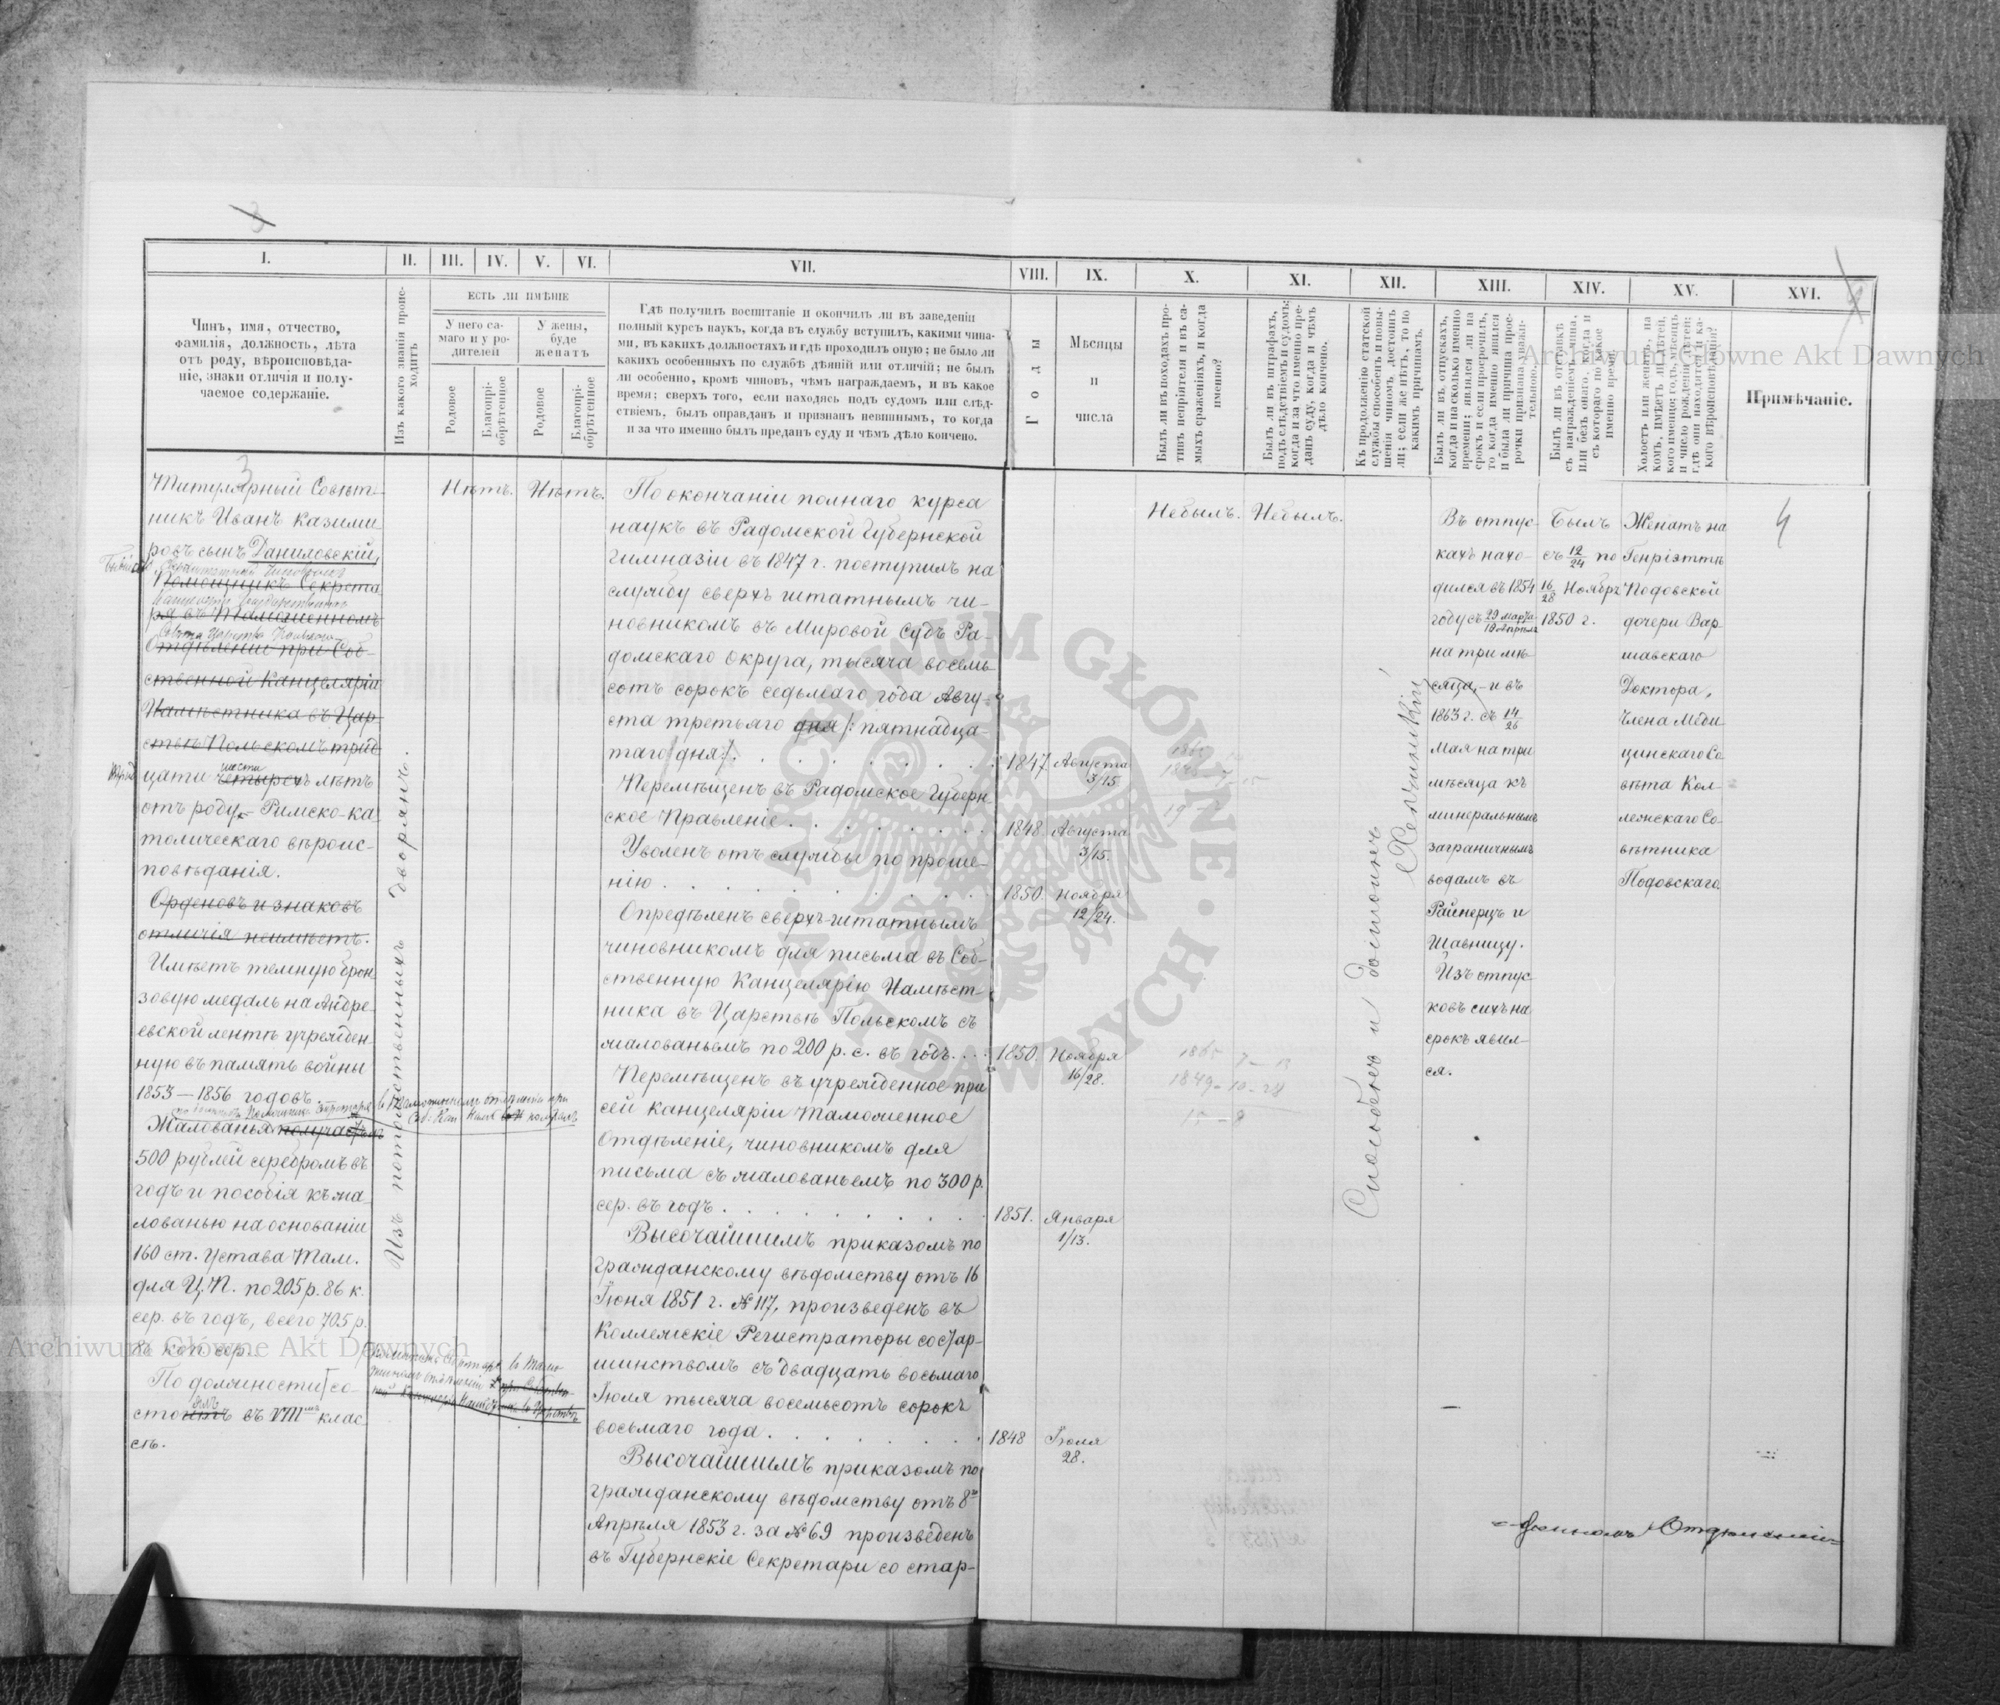 3
I.
II.
III.
IV.
V.
VI.
VII.
VIII.
IX.
X.
XI.
XII.
XIII.
XIV.
XV.
XVI.
Чинъ, имя, отчество,
фамилія, должность, лѣта
отъ роду, вѣроисповѣда-
ніе, знаки отличія и полу-
чаемое содержаніе.
Изъ какого званія проис-
ходитъ
ЕСТЬ ЛИ ИМѢНІЕ
У него са-
маго и у ро-
дителей
У жены,
буде
женатъ
Родовое
Благопрі-
обрѣтенное
Родовое
Благопрі-
обрѣтенное
Гдѣ получилъ воспитаніе и окончилъ ли въ заведеніи
полный курсъ наукъ, когда въ службу вступилъ, какими чина-
ми, въ какихъ должностяхъ и гдѣ проходилъ оную; не было ли
какихъ особенныхъ по службѣ дѣяній или отличій; не былъ
ли особенно, кромѣ чиновъ, чѣмъ награждаемъ, и въ какое
время; сверхъ того, если находясь подъ судомъ или слѣд-
ствіемъ, былъ оправданъ и признанъ невиннымъ, то когда
и за что именно былъ преданъ суду и чѣмъ дѣло кончено.
Годы
Мѣсяцы
и
числа
Былъ ли въ походахъ про-
тивъ непріятеля и въ са-
мыхъ сраженіяхъ, и когда
именно?
Былъ ли въ штрафахъ,
подъ слѣдствіемъ и судомъ;
когда и за что именно пре-
данъ суду, когда и чѣмъ
дѣло кончено.
Къ продолженію статской
службы способенъ и повы-
шенія чиномъ достоинъ
ли; если же нѣтъ, то по
какимъ причинамъ.
Былъ ли въ отпускахъ,
когда и на сколько именно
времени; явился ли на
срокъ и если просрочилъ,
то когда именно явился
и была ли причина прос-
рочки признана уважи-
тельною.
Былъ ли въ отставкѣ
съ награжденіемъ чина,
или безъ онаго, когда и
съ котораго по какое
именно время.
Холостъ или женатъ, на
комъ, имѣетъ ли дѣтей,
кого именно; годъ, мѣсяцъ
и число рожденія дѣтей;
гдѣ они находятся и ка-
кого вѣроисповѣданія?
Примѣчаніе.
3
Титулярный Совѣт-
никъ Иванъ Казими
ровъ сынъ Даниловскій,
Помощникъ Секрета
ря въ Таможенномъ
Отдѣленіи при Соб-
ственной Канцеляріи
Намѣстника въ Цар-
ствѣ Польскомъ трид
цати четырехъ лѣтъ
шести
отъ роду, Римско-ка
толическаго вѣроис-
повѣданія.
Орденовъ и знаковъ
отличія неимѣетъ.
Имѣетъ темную брон
зовую медаль на Андре
евской лентѣ учрежден-
ную въ память войны
1853—1856 годовъ.
Жалованья получаетъ
500 рублей серебромъ въ
годъ и пособія къ жа
лованью на основаніи
160 ст. Устава Там.
для Ц. П. по 205 р. 86 к.
сер. въ годъ, всего 705 р.
86 коп. сер.
По должности со-
стоитъ въ VIII клас
сѣ.
Изъ потомственныхъ дворянъ.
Нѣтъ.
Нѣтъ.
По окончаніи полнаго курса
наукъ въ Радомской Губернской
гимназіи въ 1847 г. поступилъ на
службу сверхъ штатнымъ чи-
новникомъ въ Мировой Судъ Ра-
домскаго Округа, тысяча восемь
сотъ сорокъ седьмаго года Авгу-
ста третьяго дня /: пятнадца-
таго дня /. 1847 Августа 3/15.
Перемѣщенъ въ Радомское Губерн
ское Правленіе. 1848 Августа 3/15.
Уволенъ отъ службы по проше-
нію. 1850. Ноября 12/24.
Опредѣленъ сверхъ-штатнымъ
чиновникомъ для письма въ Соб-
ственную Канцелярію Намѣст-
ника въ Царствѣ Польскомъ съ
жалованьемъ по 200 р. с. въ годъ. 1850. Ноября 16/28.
Перемѣщенъ въ учрежденное при
сей канцеляріи Таможенное
Отдѣленіе, чиновникомъ для
письма съ жалованьемъ по 300 р.
сер. въ годъ. 1851. Января 1/13.
Высочайшимъ приказомъ по
гражданскому вѣдомству отъ 16
Іюня 1851 г. № 117, произведенъ въ
Коллежскіе Регистраторы со стар-
шинствомъ съ двадцать восьмаго
Іюля тысяча восемьсотъ сорокъ
восьмаго года. 1848 Іюля 28.
Высочайшимъ приказомъ по
гражданскому вѣдомству отъ 8го
Апрѣля 1853 г. за № 69 произведенъ
въ Губернскіе Секретари со стар-
Небылъ.
Небылъ.
Способенъ и достоинъ
Въ отпус-
кахъ нахо-
дился въ 1854
году съ 29 Марта/10 Апрѣля
на три мѣ
сяца, и въ
1863 г. съ 14/26
Мая на три
мѣсяца къ
минеральнымъ
заграничнымъ
водамъ въ
Райнерцъ и
Щавницу.
Изъ отпус
ковъ сихъ на
срокъ явил-
ся.
Былъ
съ 12/24 по
16/28 Ноября
1850 г.
Женатъ на
Генріэттѣ
Подовской
дочери Вар-
шавскаго
Доктора,
Члена Меди
цинскаго Со
вѣта Кол-
лежскаго Со-
вѣтника
Подовскаго
4
Archiwum Główne Akt Dawnych
Archiwum Główne Akt Dawnych
ARCHIWUM GŁÓWNE · AKT DAWNYCH ·